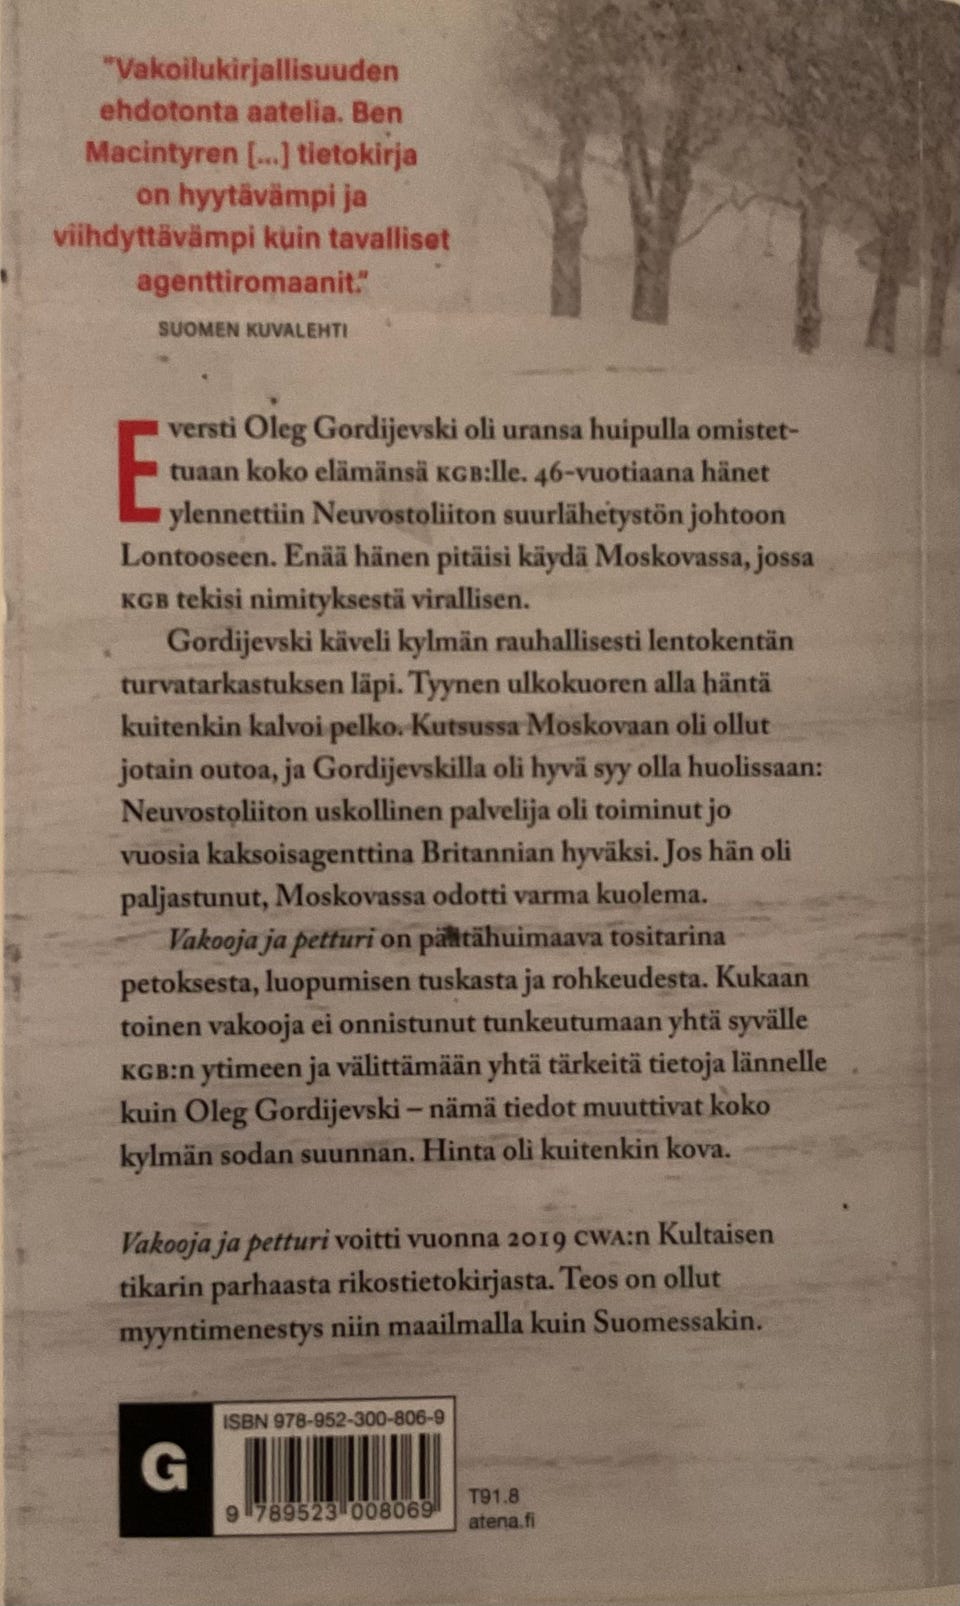 "Vakoilukirjallisuuden
ehdotonta aatelia. Ben
Macintyren [...] tietokirja
on hyytävämpi ja
viihdyttävämpi kuin tavalliset
agenttiromaanit."
SUOMEN KUVALEHTI
Eversti Oleg Gordijevski oli uransa huipulla omistet-
tuaan koko elämänsä KGB:lle. 46-vuotiaana hänet
ylennettiin Neuvostoliiton suurlähetystön johtoon
Lontooseen. Enää hänen pitäisi käydä Moskovassa, jossa
KGB tekisi nimityksestä virallisen.
Gordijevski käveli kylmän rauhallisesti lentokentän
turvatarkastuksen läpi. Tyynen ulkokuoren alla häntä
kuitenkin kalvoi pelko. Kutsussa Moskovaan oli ollut
jotain outoa, ja Gordijevskilla oli hyvä syy olla huolissaan:
Neuvostoliiton uskollinen palvelija oli toiminut jo
vuosia kaksoisagenttina Britannian hyväksi. Jos hän oli
paljastunut, Moskovassa odotti varma kuolema.
Vakooja ja petturi on päätähuimaava tositarina
petoksesta, luopumisen tuskasta ja rohkeudesta. Kukaan
toinen vakooja ei onnistunut tunkeutumaan yhtä syvälle
KGB:n ytimeen ja välittämään yhtä tärkeitä tietoja lännelle
kuin Oleg Gordijevski – nämä tiedot muuttivat koko
kylmän sodan suunnan. Hinta oli kuitenkin kova.
Vakooja ja petturi voitti vuonna 2019 CWA:n Kultaisen
tikarin parhaasta rikostietokirjasta. Teos on ollut
myyntimenestys niin maailmalla kuin Suomessakin.
G
ISBN 978-952-300-806-9
9 789523 008069
T91.8
atena.fi